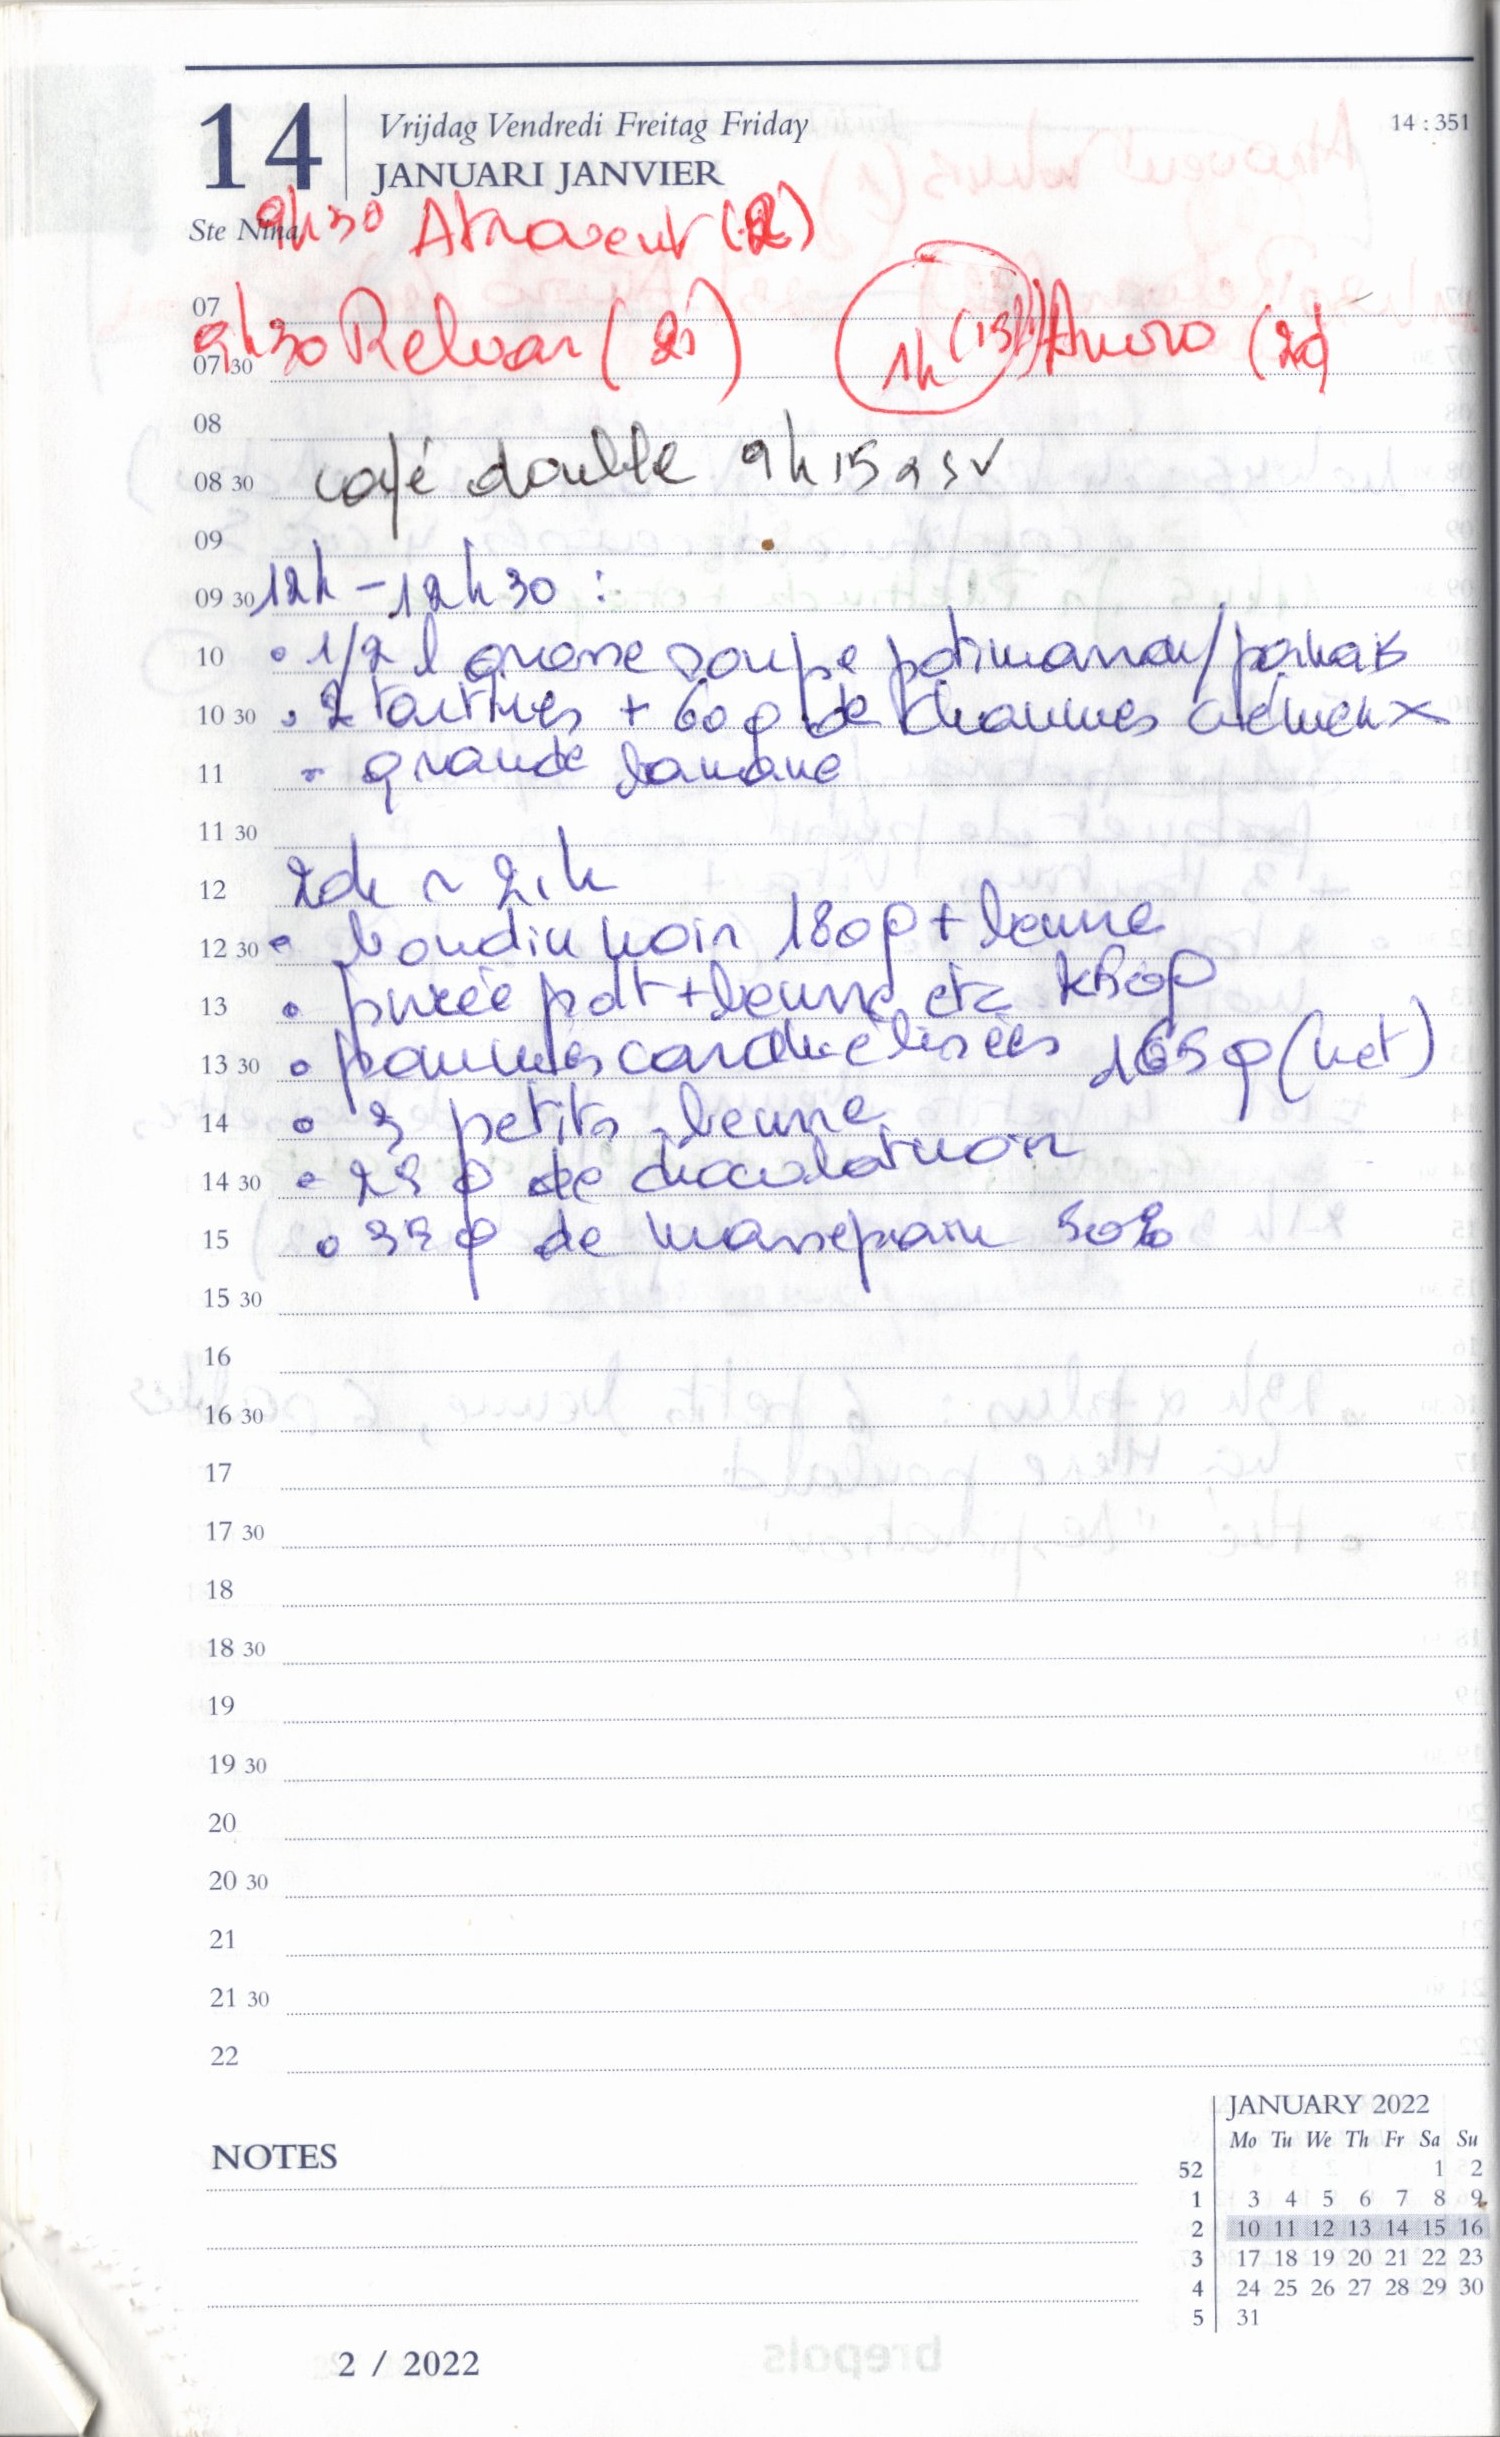 14 Vrijdag Vendredi Freitag Friday 14 : 351
JANUARI JANVIER
Ste Nina
9h30 Atrovent (2)
07
9h30 Relvar (2) 1h (15) Anoro (2)
07 30
08
café double 9h15
08 30
09
12h - 12h30 :
09 30
10 • 1/2 l grosse soupe potimarron/panais
10 30 • 2 tartines + 60g de chaumes crémeux
11 - grande banane
11 30
12 20h ~ 21h
12 30 • boudin noir 180g + beurre
13 • purée pdt + beurre etc
13 30 • pommes caramélisées 165g (net)
14 • 3 petits beurre
14 30 • 25 g de chocolat noir
15 • 35 g de massepain 50%
15 30
16
16 30
17
17 30
18
18 30
19
19 30
20
20 30
21
21 30
22
NOTES
JANUARY 2022
Mo Tu We Th Fr Sa Su
52 1 2
1 3 4 5 6 7 8 9
2 10 11 12 13 14 15 16
3 17 18 19 20 21 22 23
4 24 25 26 27 28 29 30
5 31
2 / 2022